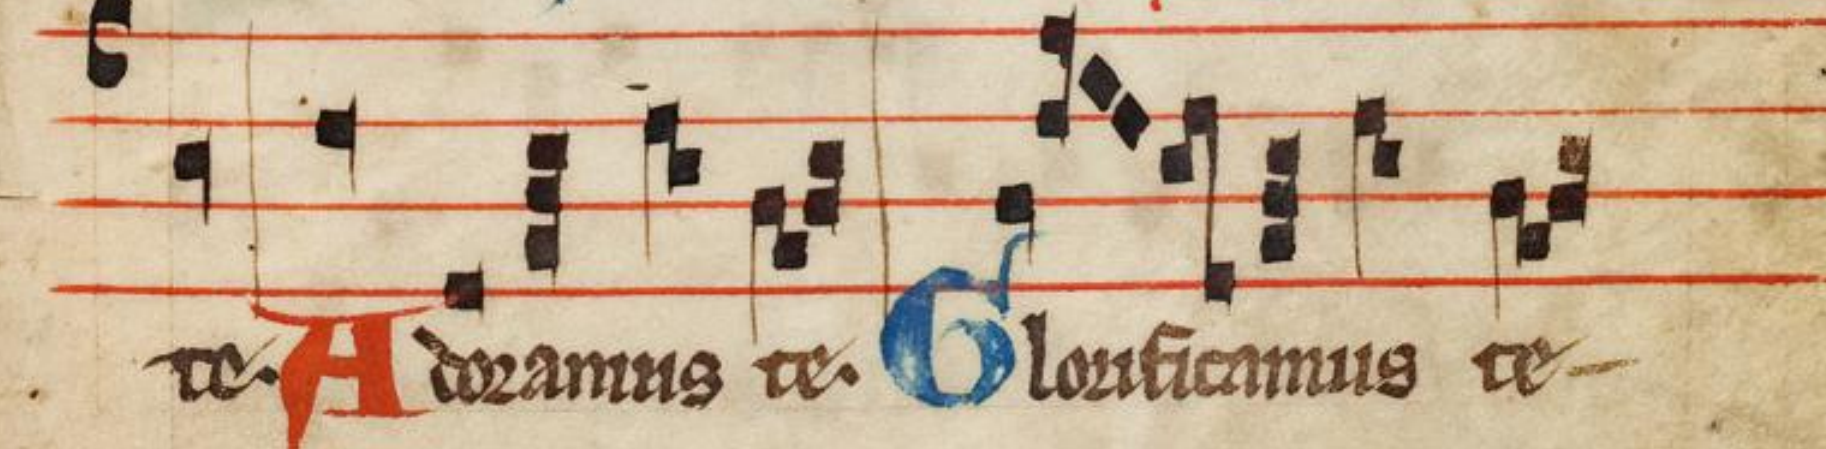 te. Adoramus te. Glorificamus te